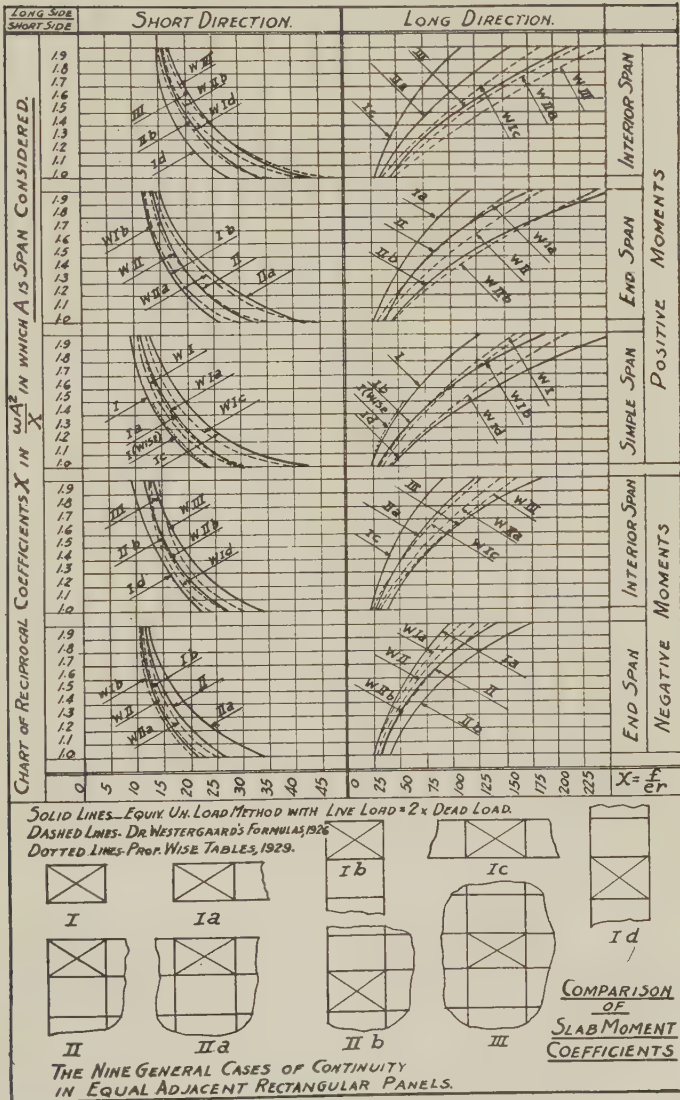 LONG SIDE
SHORT SIDE
SHORT DIRECTION.
LONG DIRECTION.
CHART OF RECIPROCAL COEFFICIENTS X IN wA²/X IN WHICH A IS SPAN CONSIDERED.
1.9
1.8
1.7
1.6
1.5
1.4
1.3
1.2
1.1
1.0
WIII
WIIb
WId
III
IIb
Id
III
IIa
Ic
WIII
WIIa
WIc
INTERIOR SPAN
1.9
1.8
1.7
1.6
1.5
1.4
1.3
1.2
1.1
1.0
WIb
WII
WIIa
Ib
II
IIa
Ia
II
IIb
WIa
WII
WIIb
END SPAN
POSITIVE MOMENTS
1.9
1.8
1.7
1.6
1.5
1.4
1.3
1.2
1.1
1.0
WI
WIa
WIc
I
Ia
I(WISE)
Ic
I
Ib
I(WISE)
Id
WI
WIb
WId
SIMPLE SPAN
1.9
1.8
1.7
1.6
1.5
1.4
1.3
1.2
1.1
1.0
III
IIb
Id
WIII
WIIb
WId
III
IIa
Ic
WIII
WIIa
WIc
INTERIOR SPAN
1.9
1.8
1.7
1.6
1.5
1.4
1.3
1.2
1.1
1.0
WIb
WII
WIIa
Ib
II
IIa
WIa
WII
WIIb
Ia
II
IIb
END SPAN
NEGATIVE MOMENTS
0 5 10 15 20 25 30 35 40 45
0 25 50 75 100 125 150 175 200 225
X = f/er
SOLID LINES_ EQUIV. UN. LOAD METHOD WITH LIVE LOAD = 2 x DEAD LOAD.
DASHED LINES- DR. WESTERGAARD'S FORMULAS, 1926
DOTTED LINES- PROF. WISE TABLES, 1929.
I
Ia
Ib
Ic
Id
II
IIa
IIb
III
COMPARISON
OF
SLAB MOMENT
COEFFICIENTS
THE NINE GENERAL CASES OF CONTINUITY
IN EQUAL ADJACENT RECTANGULAR PANELS.